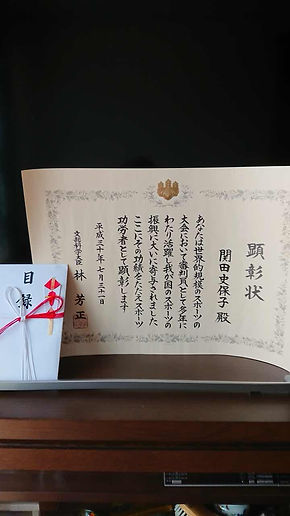 顕彰状
関田史保子 殿
あなたは世界的規模のスポーツの
大会において審判員として多年に
わたり活躍し我が国のスポーツの
振興に大いに寄与されました
ここにその功績をたたえスポーツ
功労者として顕彰します
平成三十年七月三十一日
文部科学大臣 林 芳正
目録